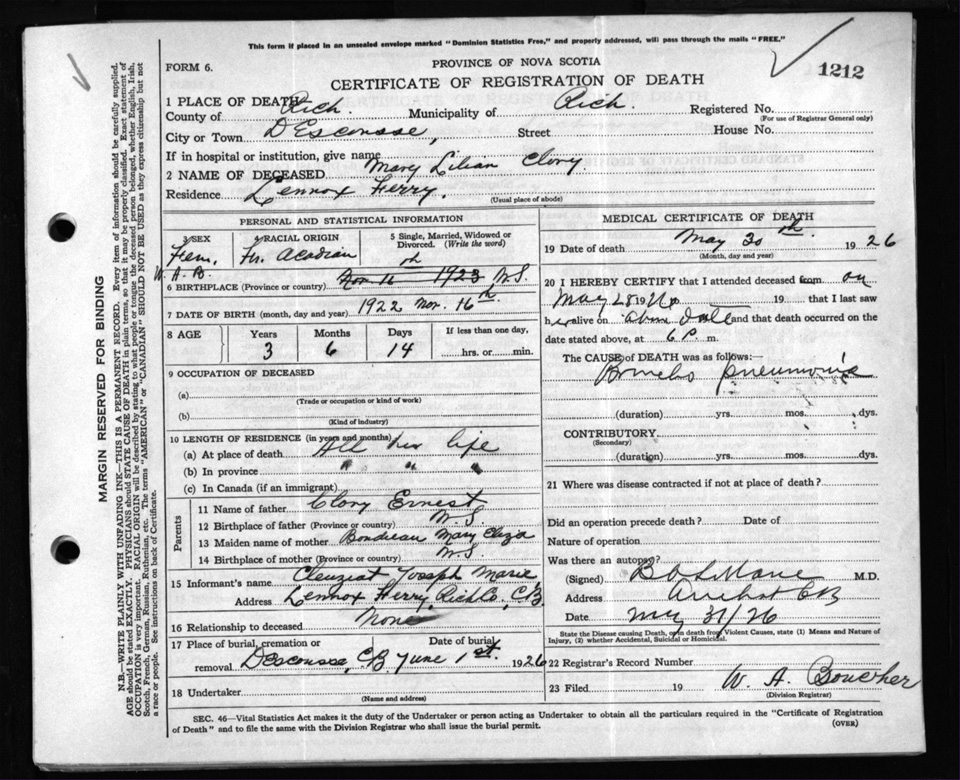 This form if placed in an unsealed envelope marked "Dominion Statistics Free," and properly addressed, will pass through the mails "FREE."
FORM 6.
PROVINCE OF NOVA SCOTIA
1212
CERTIFICATE OF REGISTRATION OF DEATH
1 PLACE OF DEATH
County of Rich. Municipality of Rich. Registered No.
(For use of Registrar General only)
City or Town D'Escousse, Street House No.
If in hospital or institution, give name
2 NAME OF DECEASED Mary Lilian Clory.
Residence Lennox Ferry.
(Usual place of abode)
PERSONAL AND STATISTICAL INFORMATION
3 SEX 4 RACIAL ORIGIN 5 Single, Married, Widowed or Divorced. (Write the word)
Fem. Fr. Acadian
W. A. B.
6 BIRTHPLACE (Province or country) Nov 16th 1923 N.S.
7 DATE OF BIRTH (month, day and year) 1922 Nov. 16th.
8 AGE Years Months Days If less than one day,
3 6 14 hrs. or min.
9 OCCUPATION OF DECEASED
(a)
(Trade or occupation or kind of work)
(b)
(Kind of industry)
10 LENGTH OF RESIDENCE (in years and months)
(a) At place of death All her life
(b) In province " " "
(c) In Canada (if an immigrant)
Parents
11 Name of father Clory Ernest
12 Birthplace of father (Province or country) N.S.
13 Maiden name of mother Boudreau Mary Eliza
14 Birthplace of mother (Province or country) N.S.
15 Informant's name Cleuziat Joseph Marie
Address Lennox Ferry, Rich Co., C.B.
16 Relationship to deceased None
17 Place of burial, cremation or removal Date of burial
Descousse, C.B June 1st. 1926
18 Undertaker
(Name and address)
MEDICAL CERTIFICATE OF DEATH
19 Date of death May 30th. 1926
(Month, day and year)
20 I HEREBY CERTIFY that I attended deceased from on
May 28 1926 19 that I last saw
her alive on above date and that death occurred on
date stated above, at 6 P. m.
The CAUSE of DEATH was as follows:—
Broncho pneumonia
(duration) yrs. mos. dys.
CONTRIBUTORY
(Secondary)
(duration) yrs. mos. dys.
21 Where was disease contracted if not at place of death?
Did an operation precede death? Date of
Nature of operation
Was there an autopsy?
(Signed) M.D.
Address Arichat CB
Date May 31/26
State the Disease causing Death, or in death from Violent Causes, state (1) Means and Nature of Injury, (2) whether Accidental, Suicidal or Homicidal.
22 Registrar's Record Number
23 Filed 19 W. A. Boucher
(Division Registrar)
SEC. 46—Vital Statistics Act makes it the duty of the Undertaker or person acting as Undertaker to obtain all the particulars required in the "Certificate of Registration
of Death" and to file the same with the Division Registrar who shall issue the burial permit.
(OVER)
MARGIN RESERVED FOR BINDING
N.B.—WRITE PLAINLY WITH UNFADING INK—THIS IS A PERMANENT RECORD. Every item of information should be carefully supplied.
AGE should be stated EXACTLY. PHYSICIANS should STATE CAUSE OF DEATH in plain terms, so that it may be properly classified. Exact statement of
OCCUPATION is very important. RACIAL ORIGIN will be described by stating to what people or tongue the deceased person belonged, whether English, Irish,
Scotch, French, German, Russian, Ruthenian, etc. The terms "AMERICAN" or "CANADIAN" SHOULD NOT BE USED as they express citizenship but not
a race or people. See instructions on back of Certificate.